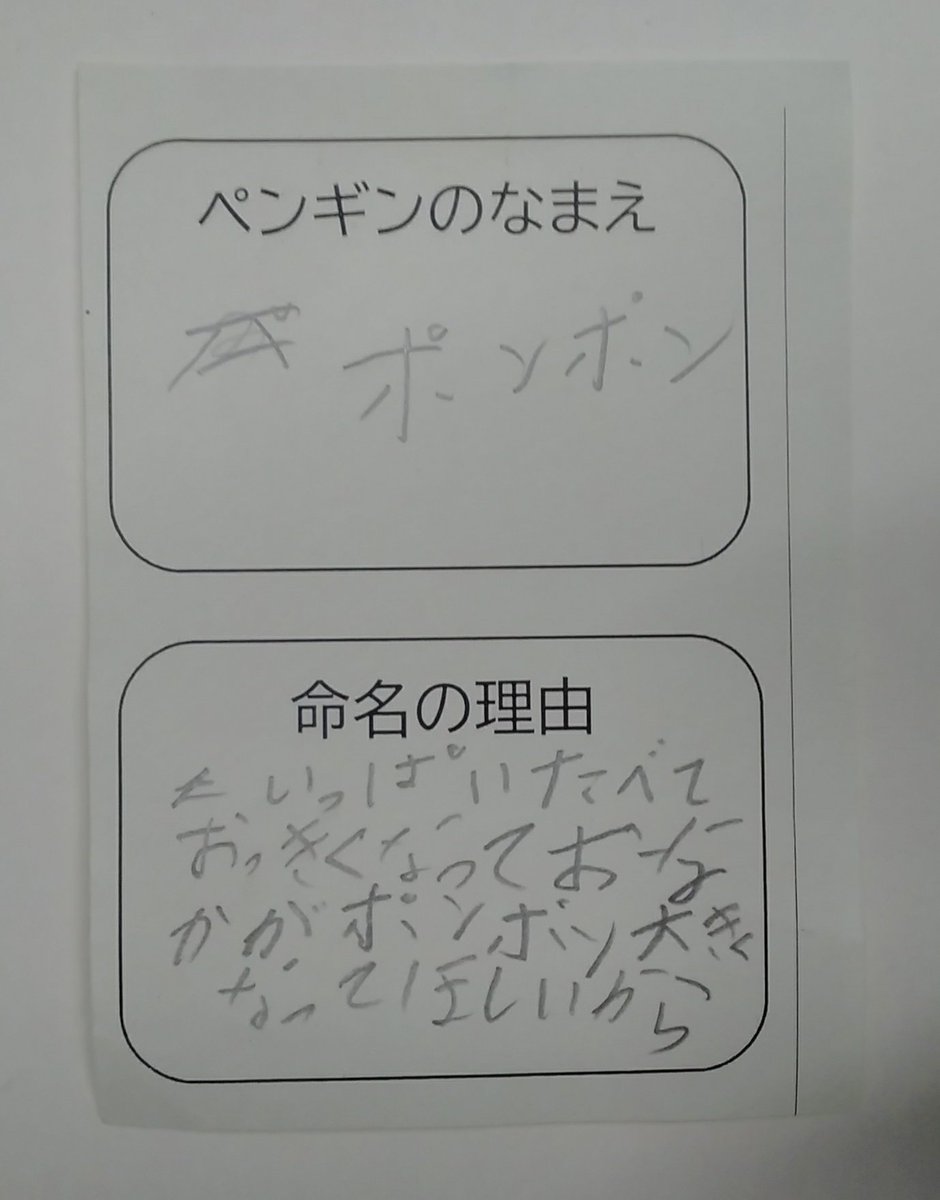 ペンギンのなまえ
ポンポン
命名の理由
いっぱいたべて
おっきくなっておな
かがポンポン大きく
なってほしいから